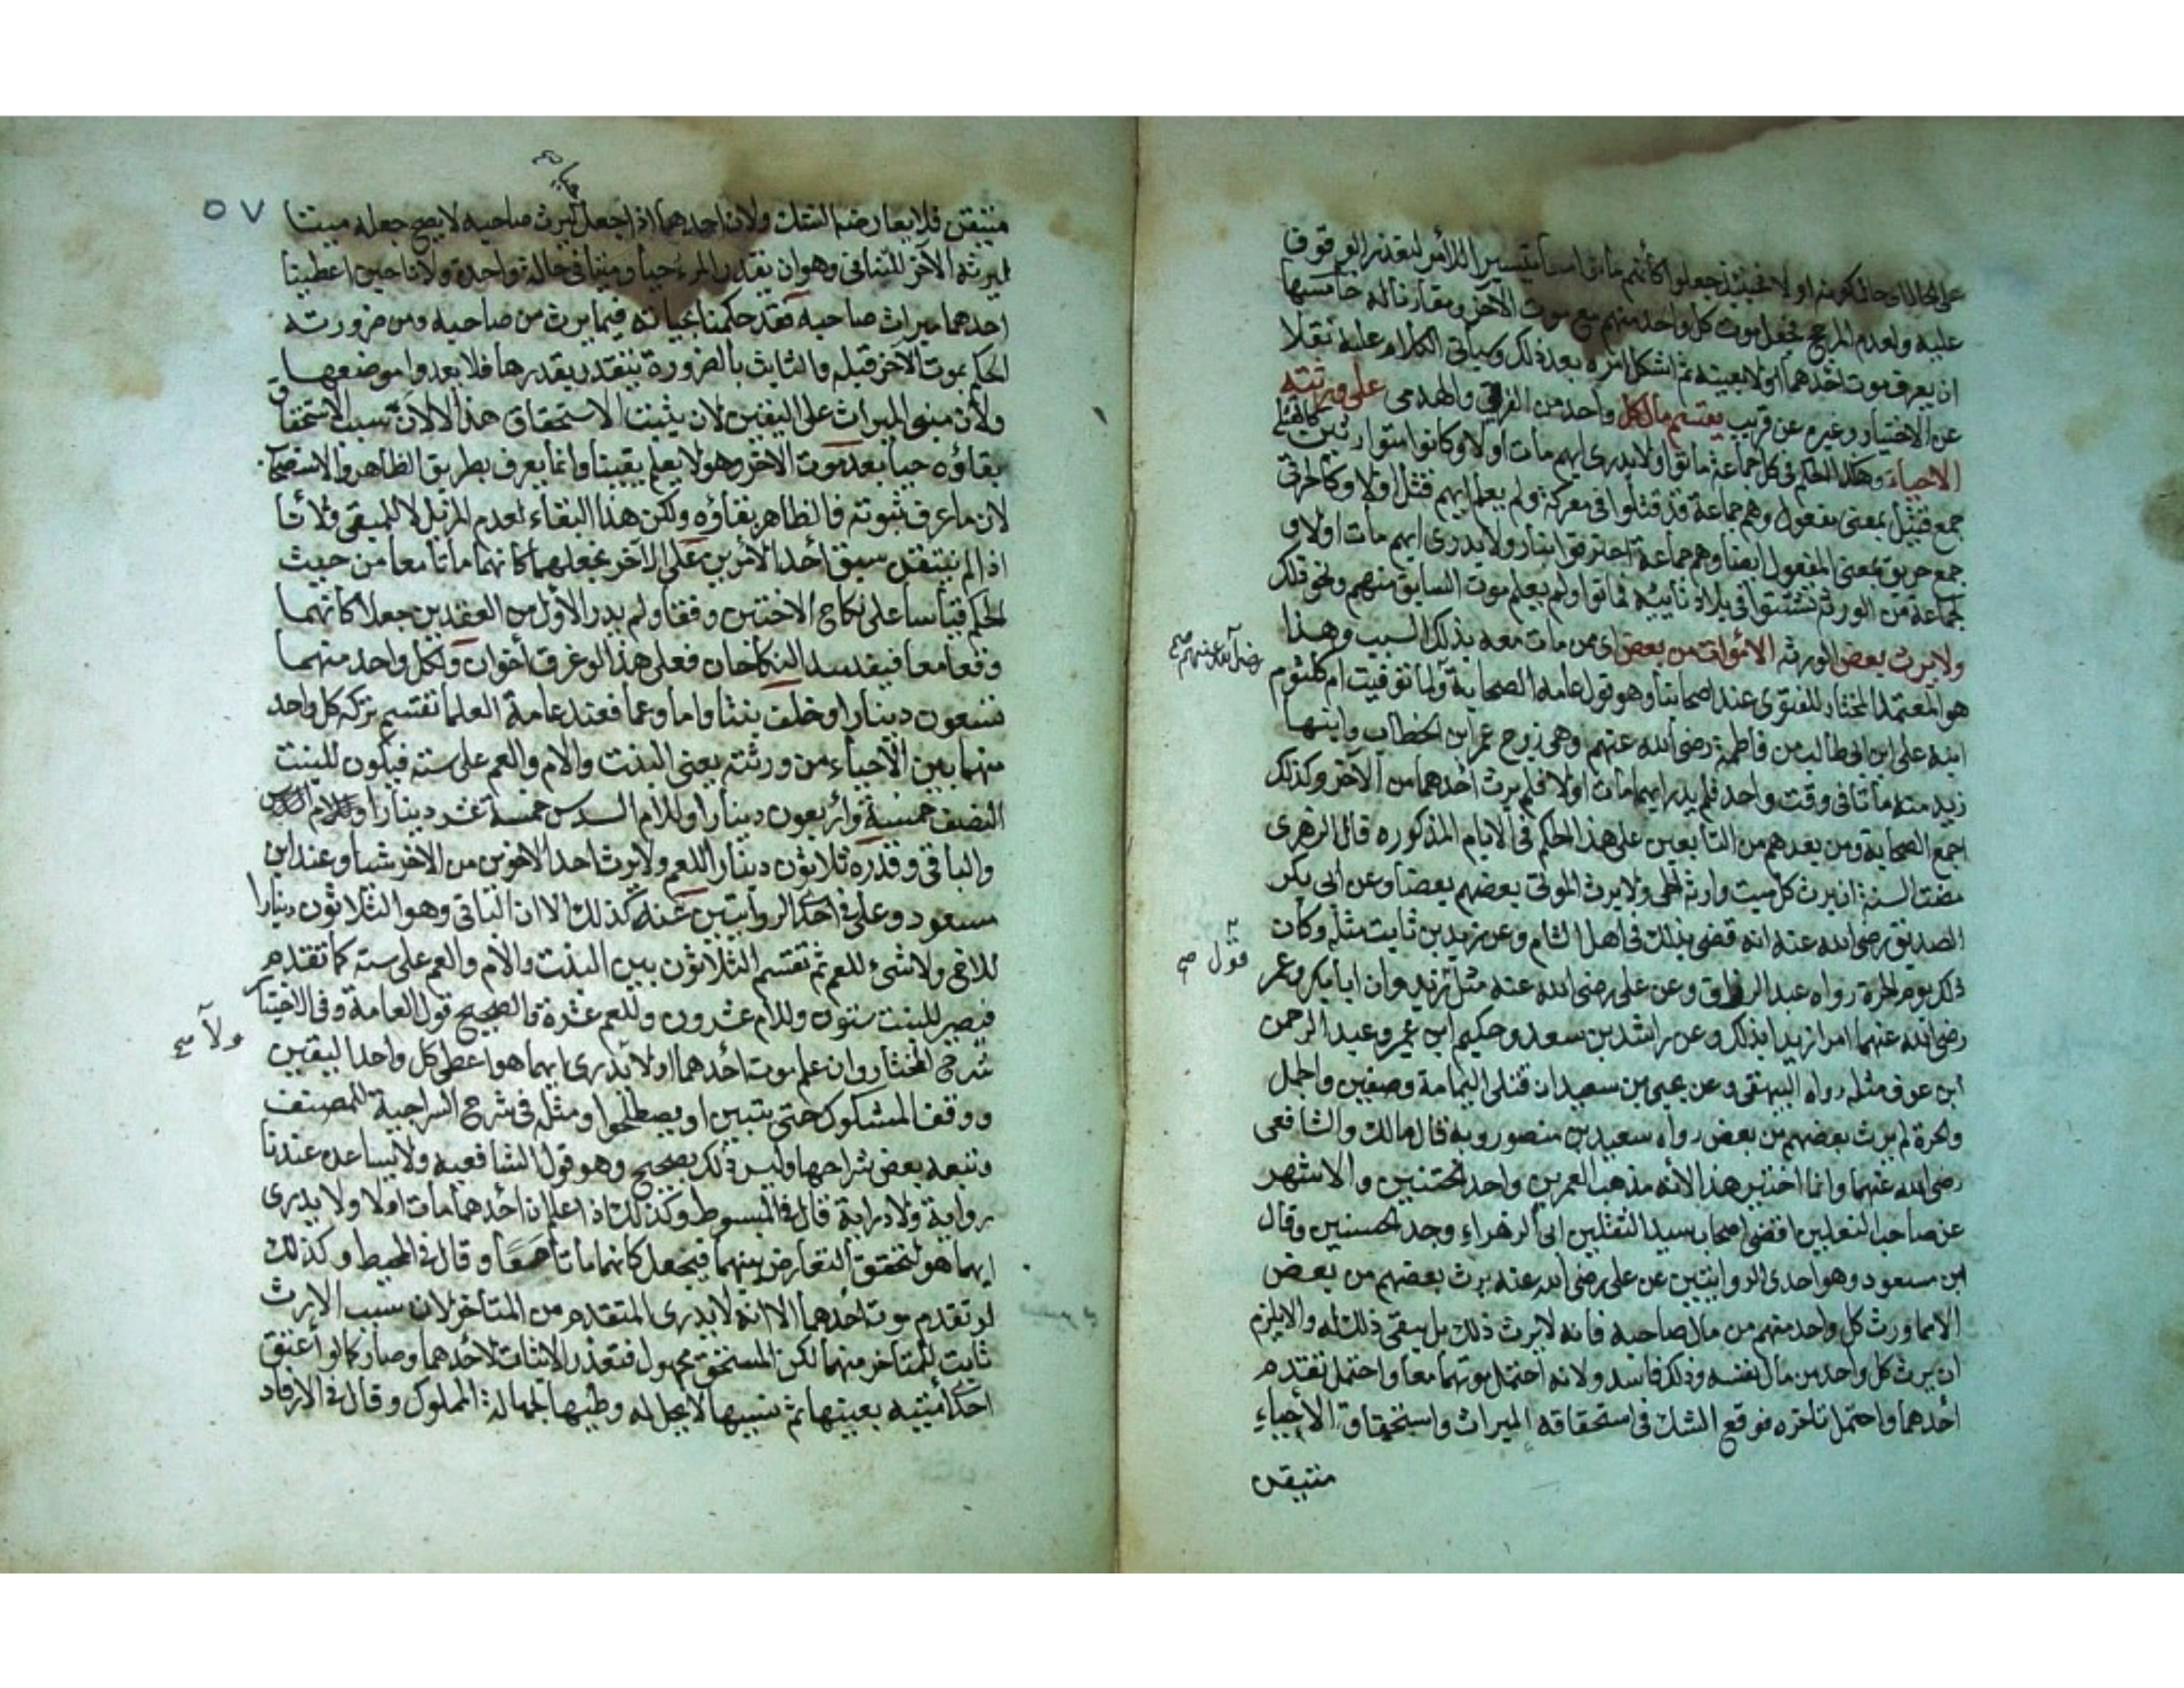 على الحال او حالكونه اولا فحينئذ جعلوا كأنهم ماتوا تيسيرا للأمر لتعذر الوقوف
عليه ولعدم المرجح فجعل موت كل واحد منهم مع موت الآخر ومقارنا له خامسها
ان يعرف موت احدهما اولا بعينه ثم اشكل امره بعد ذلك وسيأتي الكلام عليه نقلا
عن الاختيار وغيره عن قريب يقسم مال كل واحد من الغرقى والهدمى على ورثته
الاحياء وهكذا الحكم في كل جماعة ماتوا ولا يدرى ايهم مات اولا وكانوا متوارثين كالقتلى
جمع قتيل بمعنى مفعول وهم جماعة قد قتلوا في معركة ولم يعلم ايهم قتل اولا وكالحرقى
جمع حريق بمعنى المفعول ايضا وهم جماعة احترقوا بنار ولا يدرى ايهم مات اولا و
كجماعة من الورثة تشتتوا في بلاد نائية فماتوا ولم يعلم موت السابق منهم ونحو ذلك
ولا يرث بعض الورثة الاموات من بعض اى من مات معه بذلك السبب وهذا
هو المعتمد المختار للفتوى عند اصحابنا وهو قول عامة الصحابة ولما توفيت ام كلثوم
رضي الله عنهم صح
ابنة على ابن ابى طالب من فاطمة رضى الله عنهم وهى زوج عمر ابن الخطاب وابنها
زيد منه ماتا في وقت واحد فلم يدر ايهما مات اولا فلم يرث احدهما من الآخر وكذلك
اجمع الصحابة ومن بعدهم من التابعين على هذا الحكم في الايام المذكوره قال الزهرى
مضت السنة ان يرث كل ميت وارثه الحى ولا يرث الموتى بعضهم بعضا وعن ابى بكر
الصديق رضى الله عنه انه قضى بذلك في اهل الشام وعن زيد بن ثابت مثله وكان
قول صح
ذلك يوم الحرة رواه عبد الرزاق وعن على رضى الله عنه مثل زيد وان ابا بكر وعمر
رضى الله عنهما امرا زيدا بذلك وعن راشد بن سعد وحكيم ابن عمير وعبد الرحمن
ابن عوف مثله رواه البيهقى وعن يحيى بن سعيد ان قتلى اليمامة وصفين والجمل
والحرة لم يرث بعضهم من بعض رواه سعيد بن منصور وبه قال مالك والشافعى
رضى الله عنهما وانما اختير هذا لأنه مذهب العمرين واحد الختنين والاشهر
عن صاحب النعلين افضى اصحاب سيد الثقلين ابى الزهراء وجد الحسنين وقال
ابن مسعود وهو احدى الروايتين عن على رضى الله عنه يرث بعضهم من بعض
الا مما ورث كل واحد منهم من مال صاحبه فانه لا يرث ذلك بل يبقى ذلك له والا يلزم
ان يرث كل واحد من مال نفسه وذلك فاسد ولانه احتمل موتهما معا واحتمل تقدم
أحدهما واحتمل تأخره فوقع الشك في استحقاقه الميراث واستحقاق الأحياء
متيقن
٥٧
متيقن فلا يعارضه الشك ولان احدهما اذا جعل ليرث صاحبه لا يصح جعله ميتا
ليرثه الآخر للتنافى وهو ان يقدر المرء حيا وميتا في حالة واحدة ولانا حين اعطينا
احدهما ميراث صاحبه فقد حكمنا بحياته فيما يرث من صاحبه ومن ضرورته
الحكم بموت الآخر قبله والثابت بالضرورة يتقدر بقدرها فلا يعدوا موضعها
ولأن مبنى الميراث على اليقين لان يثبت الاستحقاق هذا الا لان سبب الاستحقاق
بقاؤه حيا بعد موت الاخر وهو لا يعلم يقينا وانما يعرف بطريق الظاهر والاستصحاب
لان ما عرف ثبوته فالظاهر بقاؤه ولكن هذا البقاء لعدم المزيل لا للمبقى ولأنا
اذا لم نتيقن سبق أحد الأمرين على الآخر نجعلهما كانهما ماتا معا من حيث
الحكم قياسا على نكاح الاختين وقعا ولم يدر الأول من العقدين جعلا كانهما
وقعا معا فيفسد النكاحان فعلى هذا لو غرق أخوان ولكل واحد منهما
تسعون دينارا وخلف بنتا واما وعما فعند عامة العلما تقتسم تركة كل واحد
منهما بين الأحياء من ورثته يعنى البنت والام والعم على ستة فيكون للبنت
النصف خمسة وأربعون دينارا وللام السدس خمسة عشر دينارا
والباقى وقدره ثلاثون دينارا للعم ولا يرث احد الاخوين من الاخر شيا وعند ابن
مسعود وعلى في احدى الروايتين عنه كذلك الا ان الباقى وهو الثلاثون دينارا
للاخ ولا شىء للعم ثم تقتسم الثلاثون بين البنت والأم والعم على ستة كما تقدم
فيصير للبنت ستون وللام عشرون وللعم عشرة والصحيح قول العامة وفي الاختيار
شرح المختار وان علم موت أحدهما اولا ولا يدرى ايهما هو اعطى كل واحد اليقين
ولا صح
ووقف المشكوك حتى يتبين او يصطلحوا ومثله في شرح السراجية للمصنف
وتبعه بعض شراحها وليس ذلك بصحيح وهو قول الشافعية ولا يساعده عندنا
رواية ولا دراية قال في المبسوط وكذلك اذا علم ان أحدهما مات اولا ولا يدرى
ايهما هو لتحقق التعارض بينهما فيجعل كانهما ماتا معا وقال في المحيط وكذلك
لو تقدم موت احدهما الا انه لا يدرى المتقدم من المتأخر لان سبب الإرث
ثابت للمتأخر منهما لكن المستحق مجهول فتعذر الاثبات لأحدهما وصار كما لو أعتق
احدى أمتيه بعينها ثم نسيها لا يحل له وطئها لجهالة المملوك وقال في الارفاد